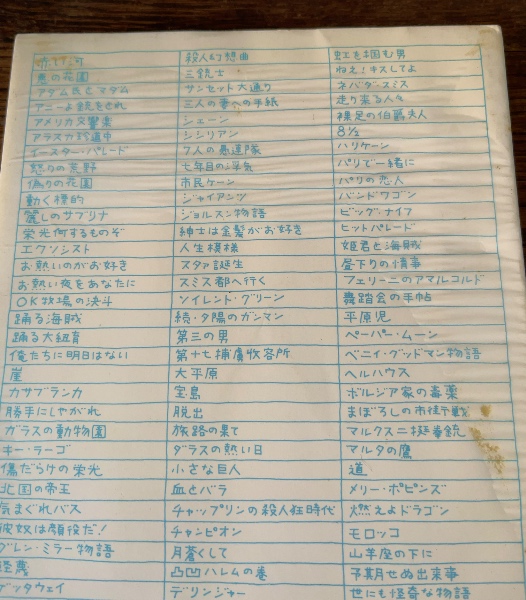 悪の花園
アダム氏とマダム
アニーよ銃をとれ
アメリカ交響楽
アラスカ珍道中
イースター・パレード
怒りの荒野
偽りの花園
動く標的
麗しのサブリナ
栄光何するものぞ
エクソシスト
お熱いのがお好き
お熱い夜をあなたに
OK牧場の決斗
踊る海賊
踊る大紐育
俺たちに明日はない
崖
カサブランカ
勝手にしやがれ
ガラスの動物園
キー・ラーゴ
傷だらけの栄光
北国の帝王
気まぐれバス
彼奴は顔役だ!
グレン・ミラー物語
軽蔑
ゲッタウェイ
殺人幻想曲
三銃士
サンセット大通り
三人の妻への手紙
シェーン
シシリアン
7人の愚連隊
七年目の浮気
市民ケーン
ジャイアンツ
ジョルスン物語
紳士は金髪がお好き
人生模様
スタア誕生
スミス都へ行く
ソイレント・グリーン
続・夕陽のガンマン
第三の男
第十七捕虜収容所
大平原
宝島
脱出
旅路の果て
ダラスの熱い日
小さな巨人
血とバラ
チャップリンの殺人狂時代
チャンピオン
月蒼くして
凸凹ハレムの巻
デリンジャー
虹を掴む男
ねえ!キスしてよ
ネバダ・スミス
走り来る人々
裸足の伯爵夫人
8½
ハリケーン
パリで一緒に
パリの恋人
バンドワゴン
ビッグ・ナイフ
ヒットパレード
姫君と海賊
昼下りの情事
フェリーニのアマルコルド
舞踏会の手帖
平原児
ペーパー・ムーン
ベニイ・グッドマン物語
ヘルハウス
ボルジア家の毒薬
まぼろしの市街戦
マルクス二挺拳銃
マルタの鷹
道
メリー・ポピンズ
燃えよドラゴン
モロッコ
山羊座の下に
予期せぬ出来事
世にも怪奇な物語